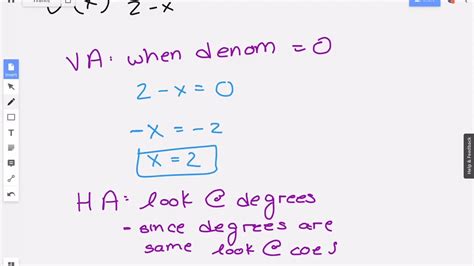 2-x
VA: when denom = 0
2-x=0
-x = -2
x = 2
HA: look @ degrees
- since degrees are
same look @ coef
Help & Feedback